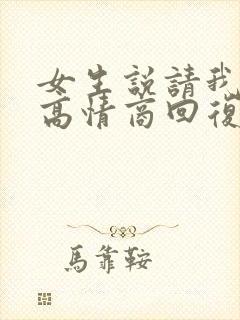 女生說請我
高情商回復
馬靠鞍